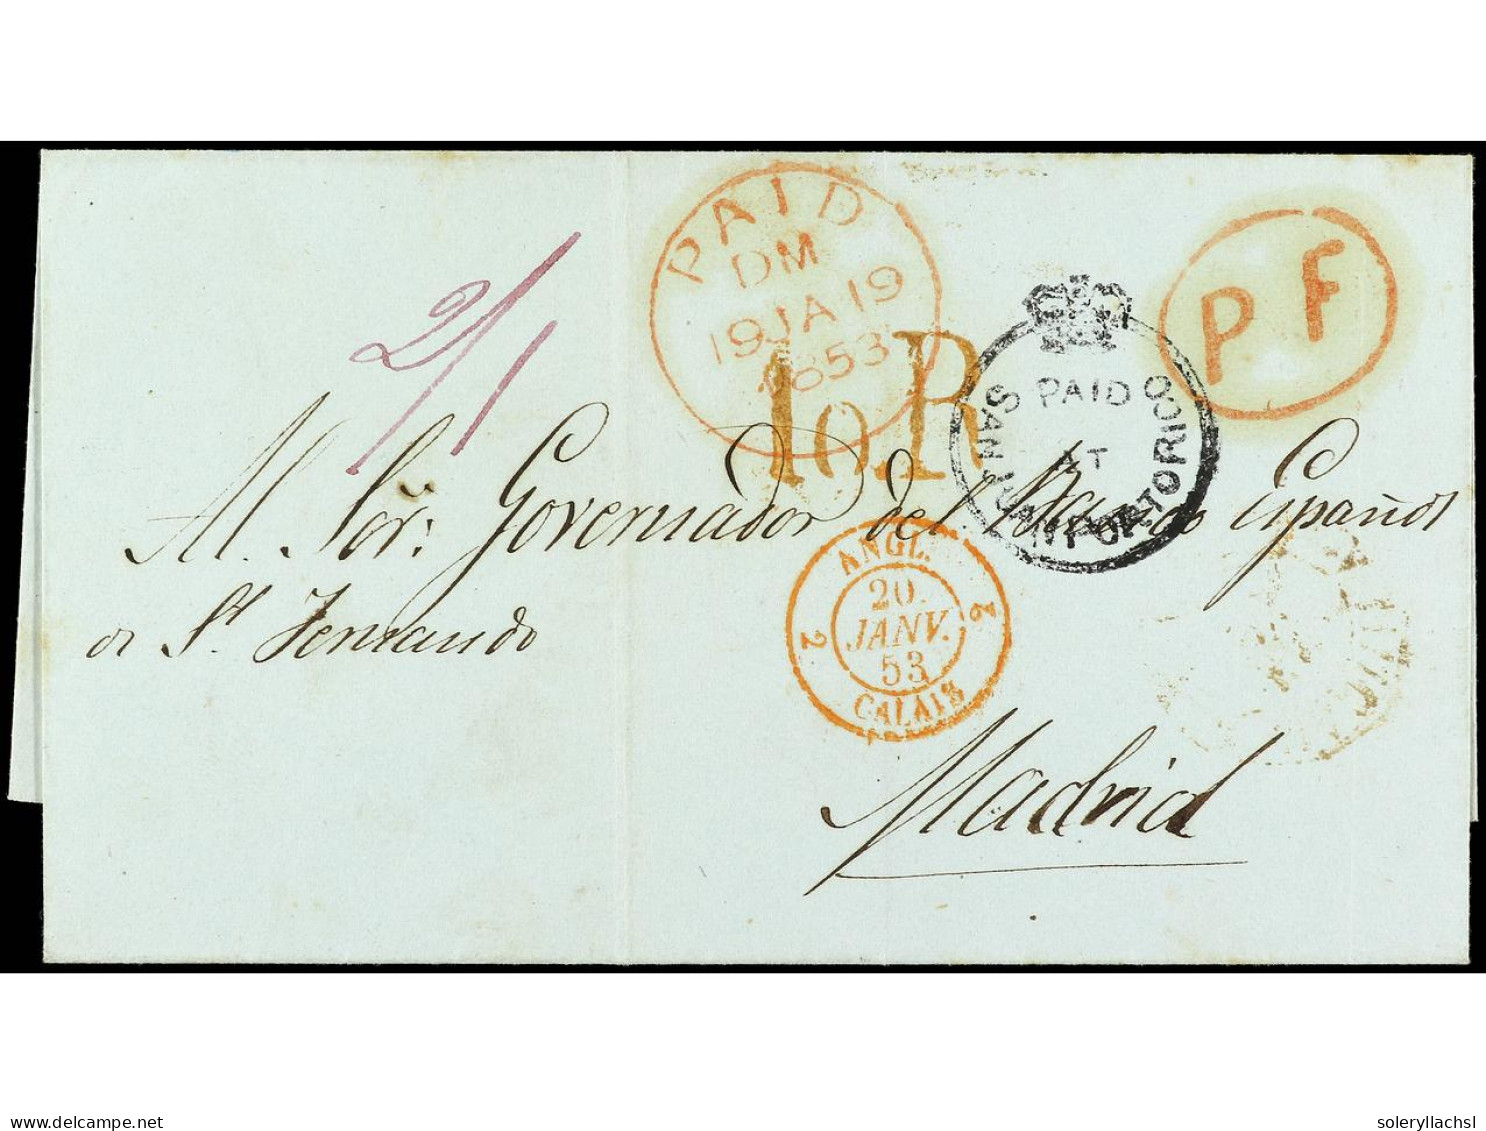 2/1
PAID
DM
19 JA 19
1853
P F
10.R
PAID
AT
SAN JUAN PORTO RICO
Al Sor: Governador del Banco Español
de Sn Fernando
ANGL.
2 2
20
JANV.
53
CALAIS
Madrid
delcampe.net
soleryllachsl